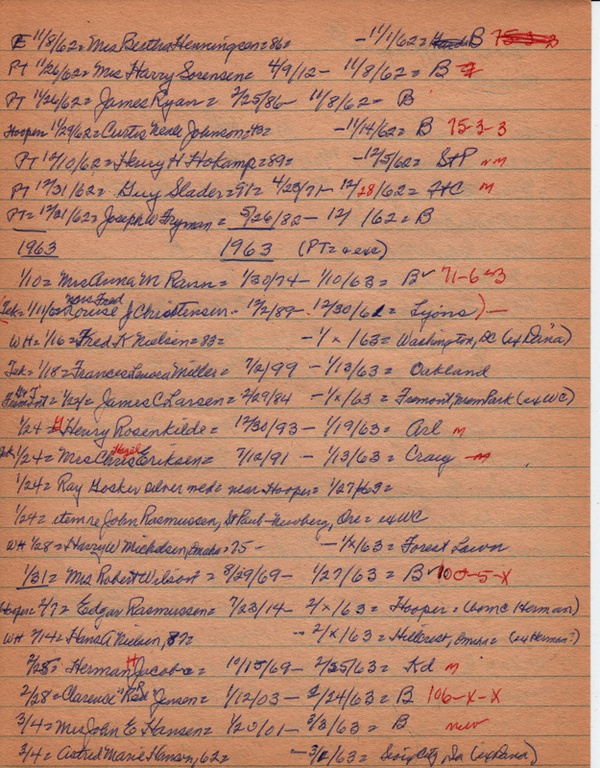 E 11/8/62 = Mrs Bertha Henningsen = 86 = - 11/1/62 = B 75-3-2
PT 11/26/62 = Mrs Harry Sorensen = 4/9/12 - 11/8/62 = B
PT 11/26/62 = James Ryan = 2/25/86 - 11/8/62 = B
Hooper 11/29/62 = Curtis Neale Johnson = 43 = - 11/14/62 = B 75-3-3
PT 12/10/62 = Henry H Hokamp = 89 = - 12/5/62 = StP nm
PT 12/31/62 = Guy Slader = 91 = 4/23/71 - 12/28/62 = HC m
PT = 12/31/62 = Joseph W Fryman = 5/26/82 - 12/ /62 = B
1963 1963 (PT = a exc)
1/10 = Mrs Anna M Rann = 1/30/74 - 1/10/63 = B 71-6-3
Mrs Fred
Tek = 1/11/62 Louise J Christensen - 12/2/89 - 12/30/61 = Lyons) -
WH = 1/16 = Fred K Nielsen = 83 = - 1/x/63 = Washington, DC (ex Dana)
Tek = 1/18 = Francis Lenora Miller = 7/2/99 - 1/13/63 = Oakland
Fremont = 1/21 = James C Larsen = 2/29/84 - 1/x/63 = Fremont, Mem Park (ex WC)
1/24 = Henry Rosenkilde = 12/30/93 - 1/19/63 = Arl m
Hazel
Tek 1/24 = Mrs Chris Eriksen = 7/12/91 - 1/13/63 = Craig - m
1/24 = Ray Gosker silver med = near Hooper = 1/27/63 =
1/24 = item re John Rasmussen, St Paul - Newberg, Ore = ex WC
WH 1/28 = Harry W Michelsen, Omaha = 75 - - 1/x/63 = Forest Lawn
1/31 = Mrs Robert Wilson = 8/29/69 - 1/27/63 = B 100-5-x
Hooper 2/7 = Edgar Rasmussen = 7/23/14 - 2/x/63 = Hooper = (bomc Herman)
WH 2/14 = Hans A Nielsen, 87 = - 2/x/63 = Hillcrest, Omaha = (ex Herman?)
2/25 = Herman H Jacobs = 10/15/69 - 2/25/63 = Kd m
2/28 = Clarence "Red" Jensen = 1/12/03 - 2/24/63 = B 106-x-x
3/4 = Mrs John E Hansen = 1/20/01 - 3/3/63 = B new
3/4 = Astrid Marie Hanson, 62 = - 3/1/63 = Sioux City, Ia (ex Dana)